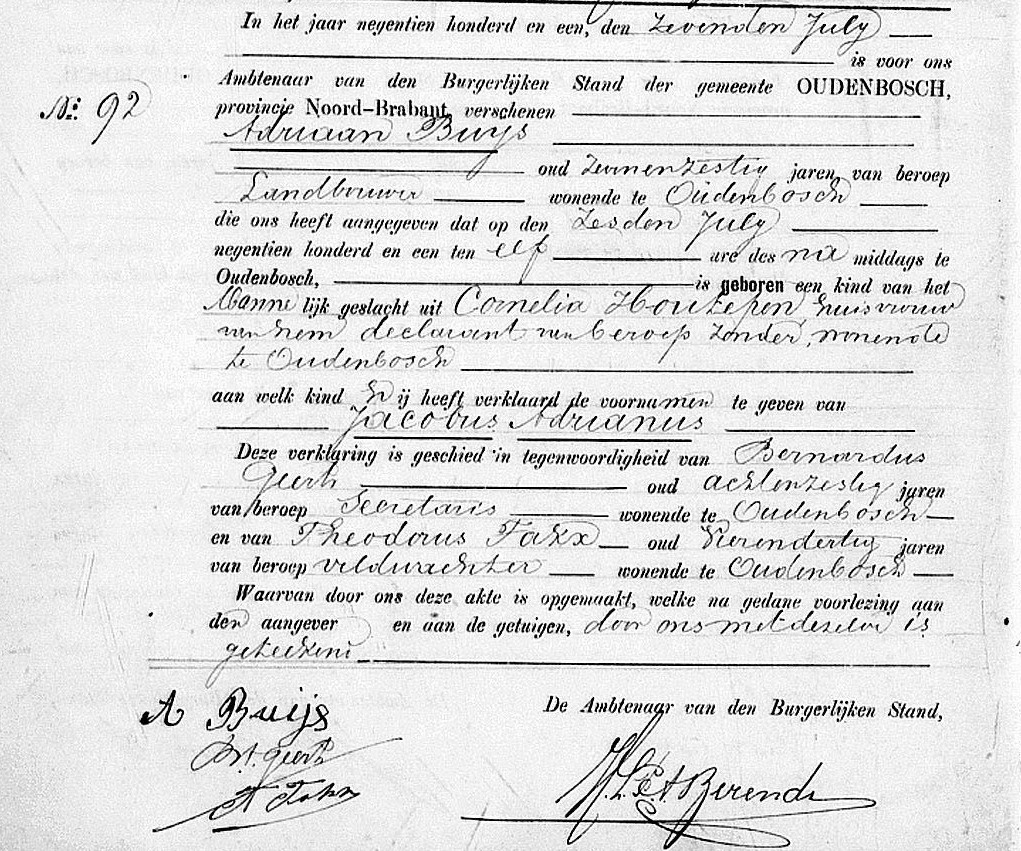 In het jaar negentien honderd en een, den zevenden July
is voor ons
Ambtenaar van den Burgerlijken Stand der gemeente OUDENBOSCH,
No: 92
provincie Noord-Brabant, verschenen
Adriaan Buys
oud zevenenzestig jaren van beroep
Landbouwer wonende te Oudenbosch
die ons heeft aangegeven dat op den Zesden July
negentien honderd en een ten elf ure des na middags te
Oudenbosch, is geboren een kind van het
Manne lijk geslacht uit Cornelia Houtepen, huisvrouw
van hem declarant van beroep zonder, wonende
te Oudenbosch
aan welk kind hij heeft verklaard de voornamen te geven van
Jacobus Adrianus
Deze verklaring is geschied in tegenwoordigheid van Bernardus
Geerts oud achtenzestig jaren
van beroep Secretaris wonende te Oudenbosch
en van Theodorus Takx oud vierendertig jaren
van beroep veldwachter wonende te Oudenbosch
Waarvan door ons deze akte is opgemaakt, welke na gedane voorlezing aan
den aangever en aan de getuigen, door ons met dezelve is
geteekend
De Ambtenaar van den Burgerlijken Stand,
A Buijs
Brt. Geerts
Berends